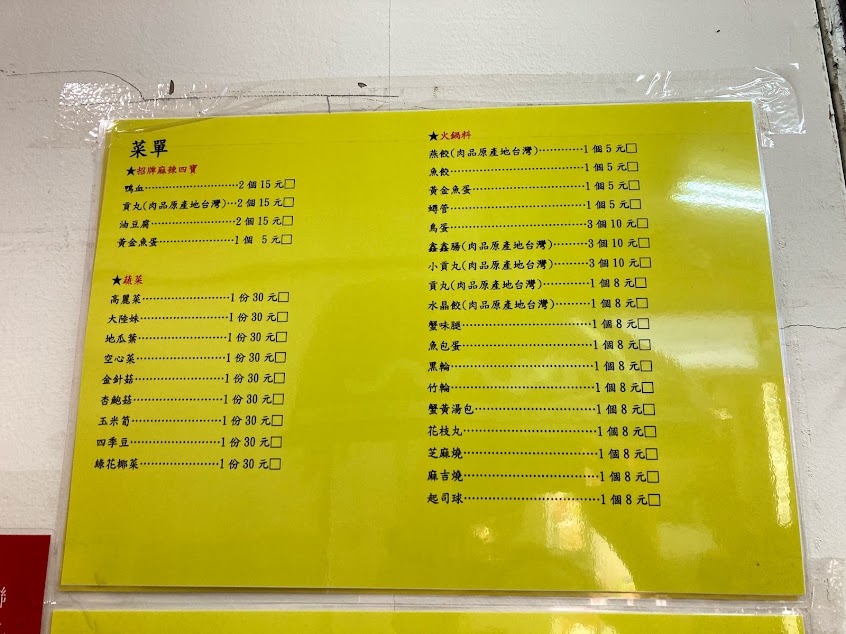 菜單
★招牌麻辣四寶
鴨血………………………2個15元□
貢丸(肉品原產地台灣)…2個15元□
油豆腐……………………2個15元□
黃金魚蛋…………………1個 5元□
★蔬菜
高麗菜……………………1份30元□
大陸妹……………………1份30元□
地瓜葉……………………1份30元□
空心菜……………………1份30元□
金針菇……………………1份30元□
杏鮑菇……………………1份30元□
玉米筍……………………1份30元□
四季豆……………………1份30元□
綠花椰菜…………………1份30元□
★火鍋料
燕餃(肉品原產地台灣)…………1個5元□
魚餃………………………………1個5元□
黃金魚蛋…………………………1個5元□
蟳管………………………………1個5元□
鳥蛋………………………………3個10元□
鑫鑫腸(肉品原產地台灣)………3個10元□
小貢丸(肉品原產地台灣)………3個10元□
貢丸(肉品原產地台灣)…………1個8元□
水晶餃(肉品原產地台灣)………1個8元□
蟹味腿……………………………1個8元□
魚包蛋……………………………1個8元□
黑輪………………………………1個8元□
竹輪………………………………1個8元□
蟹黃湯包…………………………1個8元□
花枝丸……………………………1個8元□
芝麻燒……………………………1個8元□
麻吉燒……………………………1個8元□
起司球……………………………1個8元□